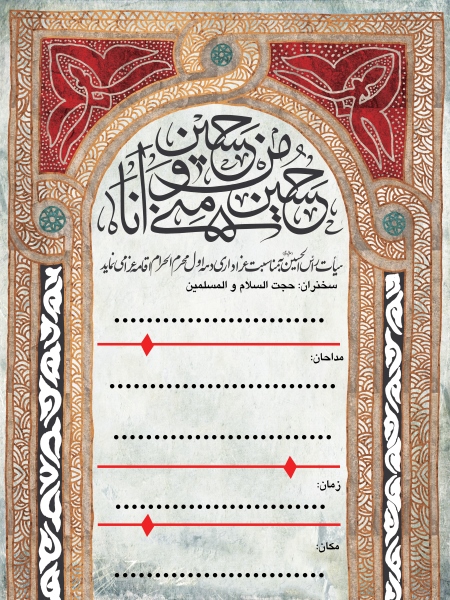 حسین منی و انا من حسین
هیات رأس الحسین بمناسبت عزاداری دهه اول محرم الحرام اقامه عزا می نماید
سخنران: حجت السلام و المسلمین
مداحان:
زمان:
مکان: